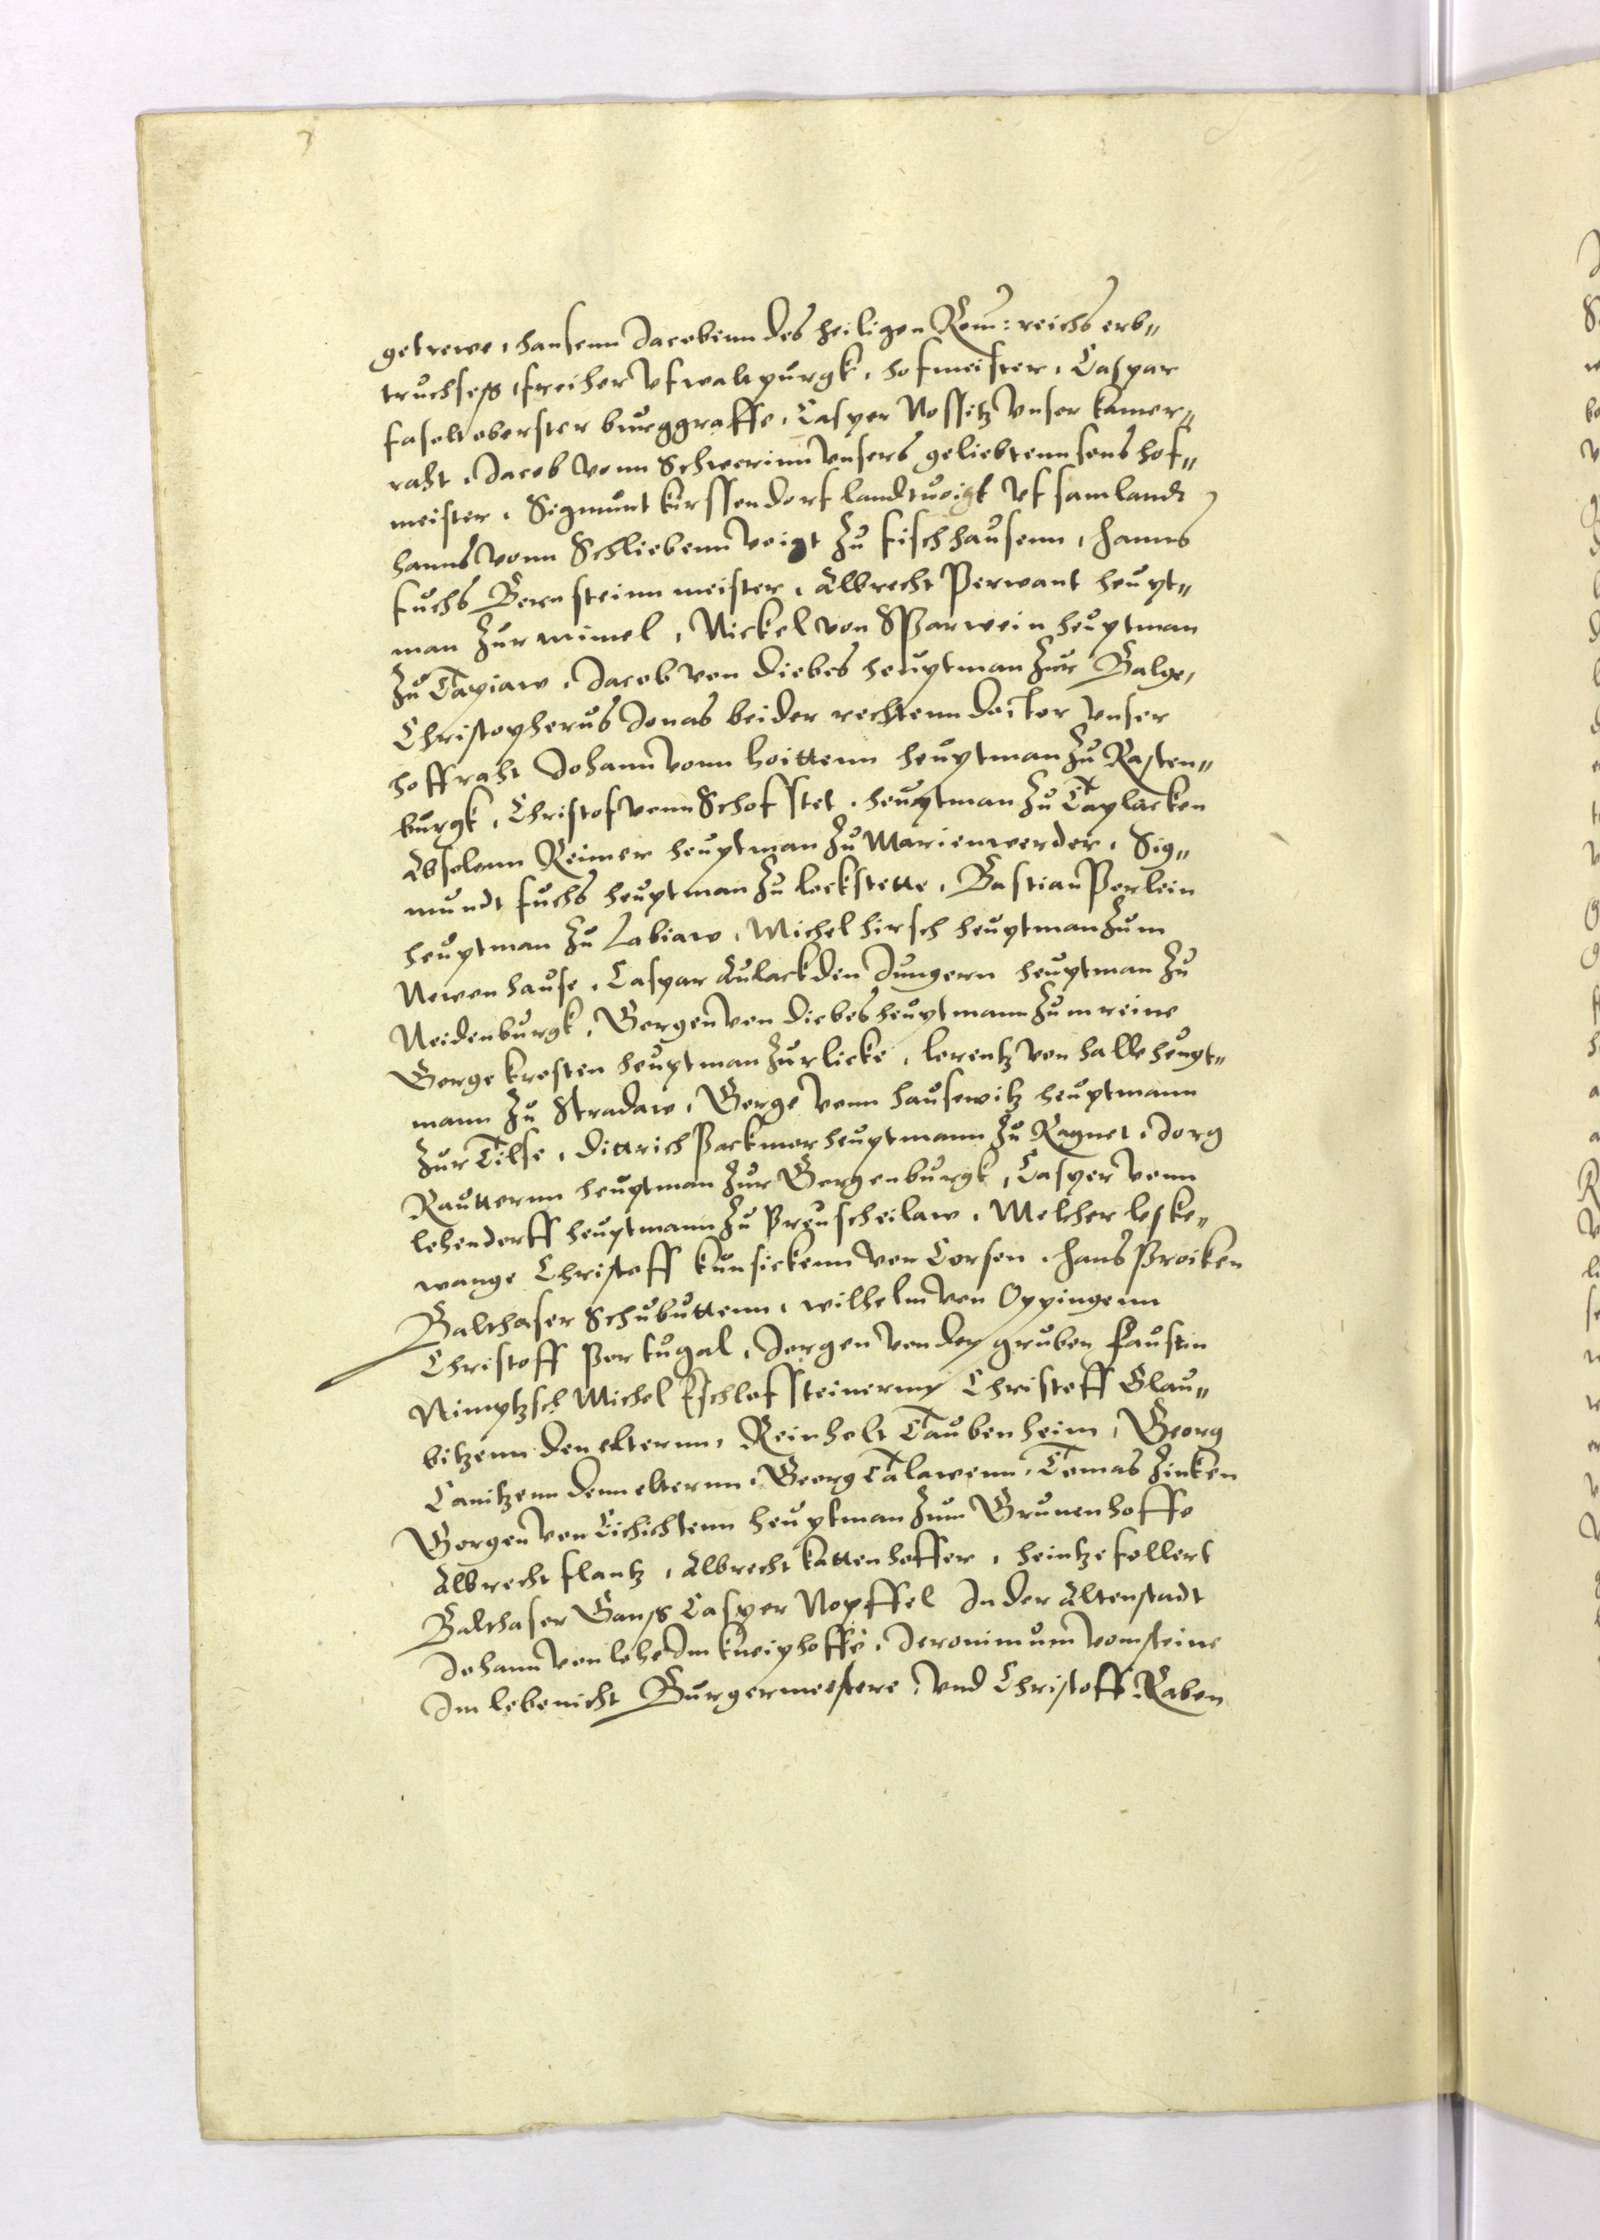 getrewe, hansenn Jacobenn des heiligen Rom: reichs erb„
truchses, freiher vf waltpurgk, hofmeister, Caspar
faselt oberster burggraffe, Casper Nostitz vnser kamer„
raht, Jacob vonn Schwerinn vnsers geliebtenn sons hof„
meister, Sigmunt kirssendorf landtvoigt vf samlandt
hanns vonn Schliebenn voigt zu fischhausenn, hanns
fuchs Bernsteinn meister, Albrecht Perwant heupt„
man zur mimel, Nickel von Sparwein heuptman
zu Tapiaw, Jacob von Diebes heuptman zur Balge,
Christopherus Jonas beider rechtenn doctor vnser
hoffraht Johann vonn hoittenn heuptman zu Rasten„
burgk, Christof vonn Schofstet, heuptman zu Taplacken
Absolonn Reimer heuptman zu Marienwerder, Sig„
mundt fuchs heuptman zu lockstette, Bastian Perlein
heuptman zu Labiaw, Michel hirsch heuptman zum
Newenhause, Caspar Aulack den Jungern heuptman zu
Neidenburgk, Gorgen von Diebes heuptmann zum reine
Gorge krosten heuptman zur licke, lorentz von halle heupt„
mann zu Stradaw, Gorge vonn hausewitz heuptmann
zur Tilse, Dittrich Packmor heuptmann zu Ragnet, Jorg
Rautternn heuptman zur Gorgenburgk, Casper vonn
lehendorff heuptmann zu Preuscheilaw, Melcher leske„
wange Christoff kunsickenn von Corsen, hans Proiken
Balthaser Schubuttenn, wilhelm von Oppingenn
Christoff Portugal, Jorgen von der gruben Faustin
Nimptzsch Michel Eschlofsteinerny Christoff Glau„
bitzenn den elternn, Reinholt Taubenheim, Georg
Canitzenn denn elternn, Georg Talawenn, Tomas Zinken
Gorgen von Cichichtenn heuptman zum Grunenhoffe
Albrecht flantz, Albrecht kattenhoffer, heintze follert
Balthaser Gans Casper Nopffel In der Altenstadt
Johann von lohe Im kneiphoffe, Jeronimum vom steine
Im lebenicht Burgermeistere, vnd Christoff Raben